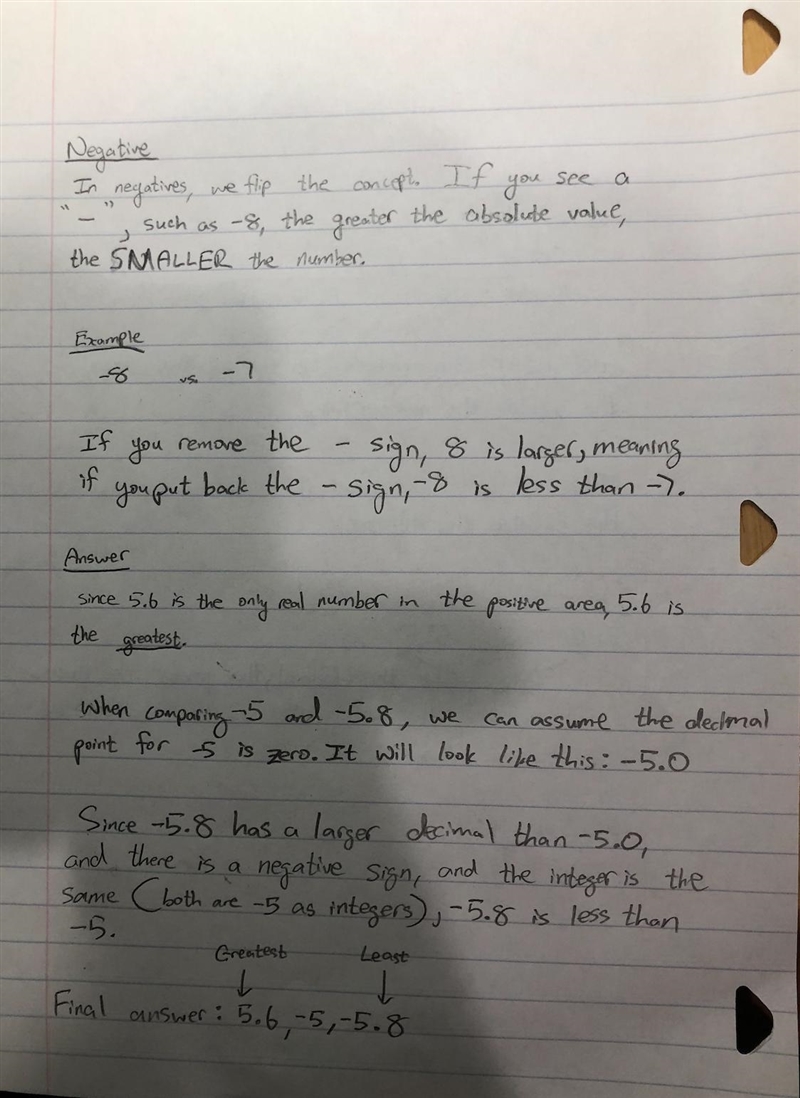 Negative
In negatives, we flip the concept. If you see a
"-", such as -8, the greater the absolute value,
the SMALLER the number.
Example
-8 vs. -7
If you remove the - sign, 8 is larger, meaning
if you put back the - sign, -8 is less than -7.
Answer
since 5.6 is the only real number in the positive area, 5.6 is
the greatest.
When comparing -5 and -5.8, we can assume the decimal
point for -5 is zero. It will look like this: -5.0
Since -5.8 has a larger decimal than -5.0,
and there is a negative sign, and the integer is the
same (both are -5 as integers), -5.8 is less than
-5.
Greatest Least
Final answer: 5.6, -5, -5.8